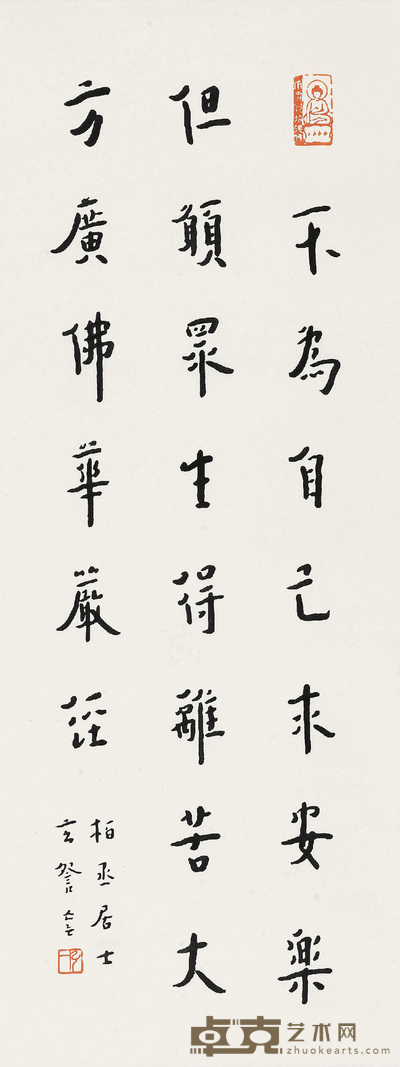 不為自己求安樂
但願眾生得離苦大
方廣佛華嚴經
柏丞居士
玄
卓克艺术网
zhuokearts.com